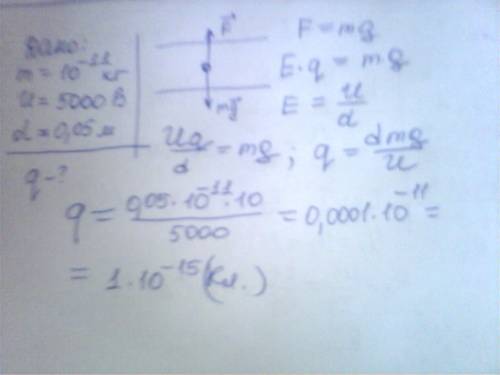 Дано:
m = 10⁻¹¹ кг
U = 5000 В
d = 0,05 м
q - ?
F
mg
F = mg
E · q = mg
E = U/d
Uq/d = mg ; q = dmg/U
q = 0,05·10⁻¹¹·10/5000 = 0,0001·10⁻¹¹ =
= 1·10⁻¹⁵ (Кл.)